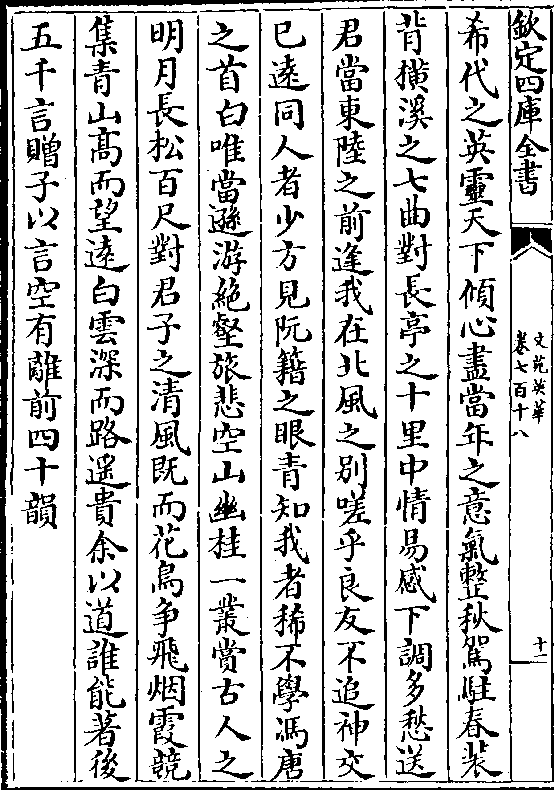 欽定四庫全書
文苑英華
卷七百十八
十一
希代之英靈天下傾心盡當年之意氣整秋駕駐春裝
背橫溪之七曲對長亭之十里中情易感下調多愁送
君當東陸之前逢我在北風之別嗟乎良友不追神交
已遠同人者少方見阮籍之眼青知我者稀不學馮唐
之首白唯當遜游絶壑旅悲空山幽桂一叢賞古人之
明月長松百尺對君子之清風既而花鳥争飛烟霞競
集青山髙而望遠白雲深而路遥貴余以道誰能著後
五千言贈子以言空有離前四十韻